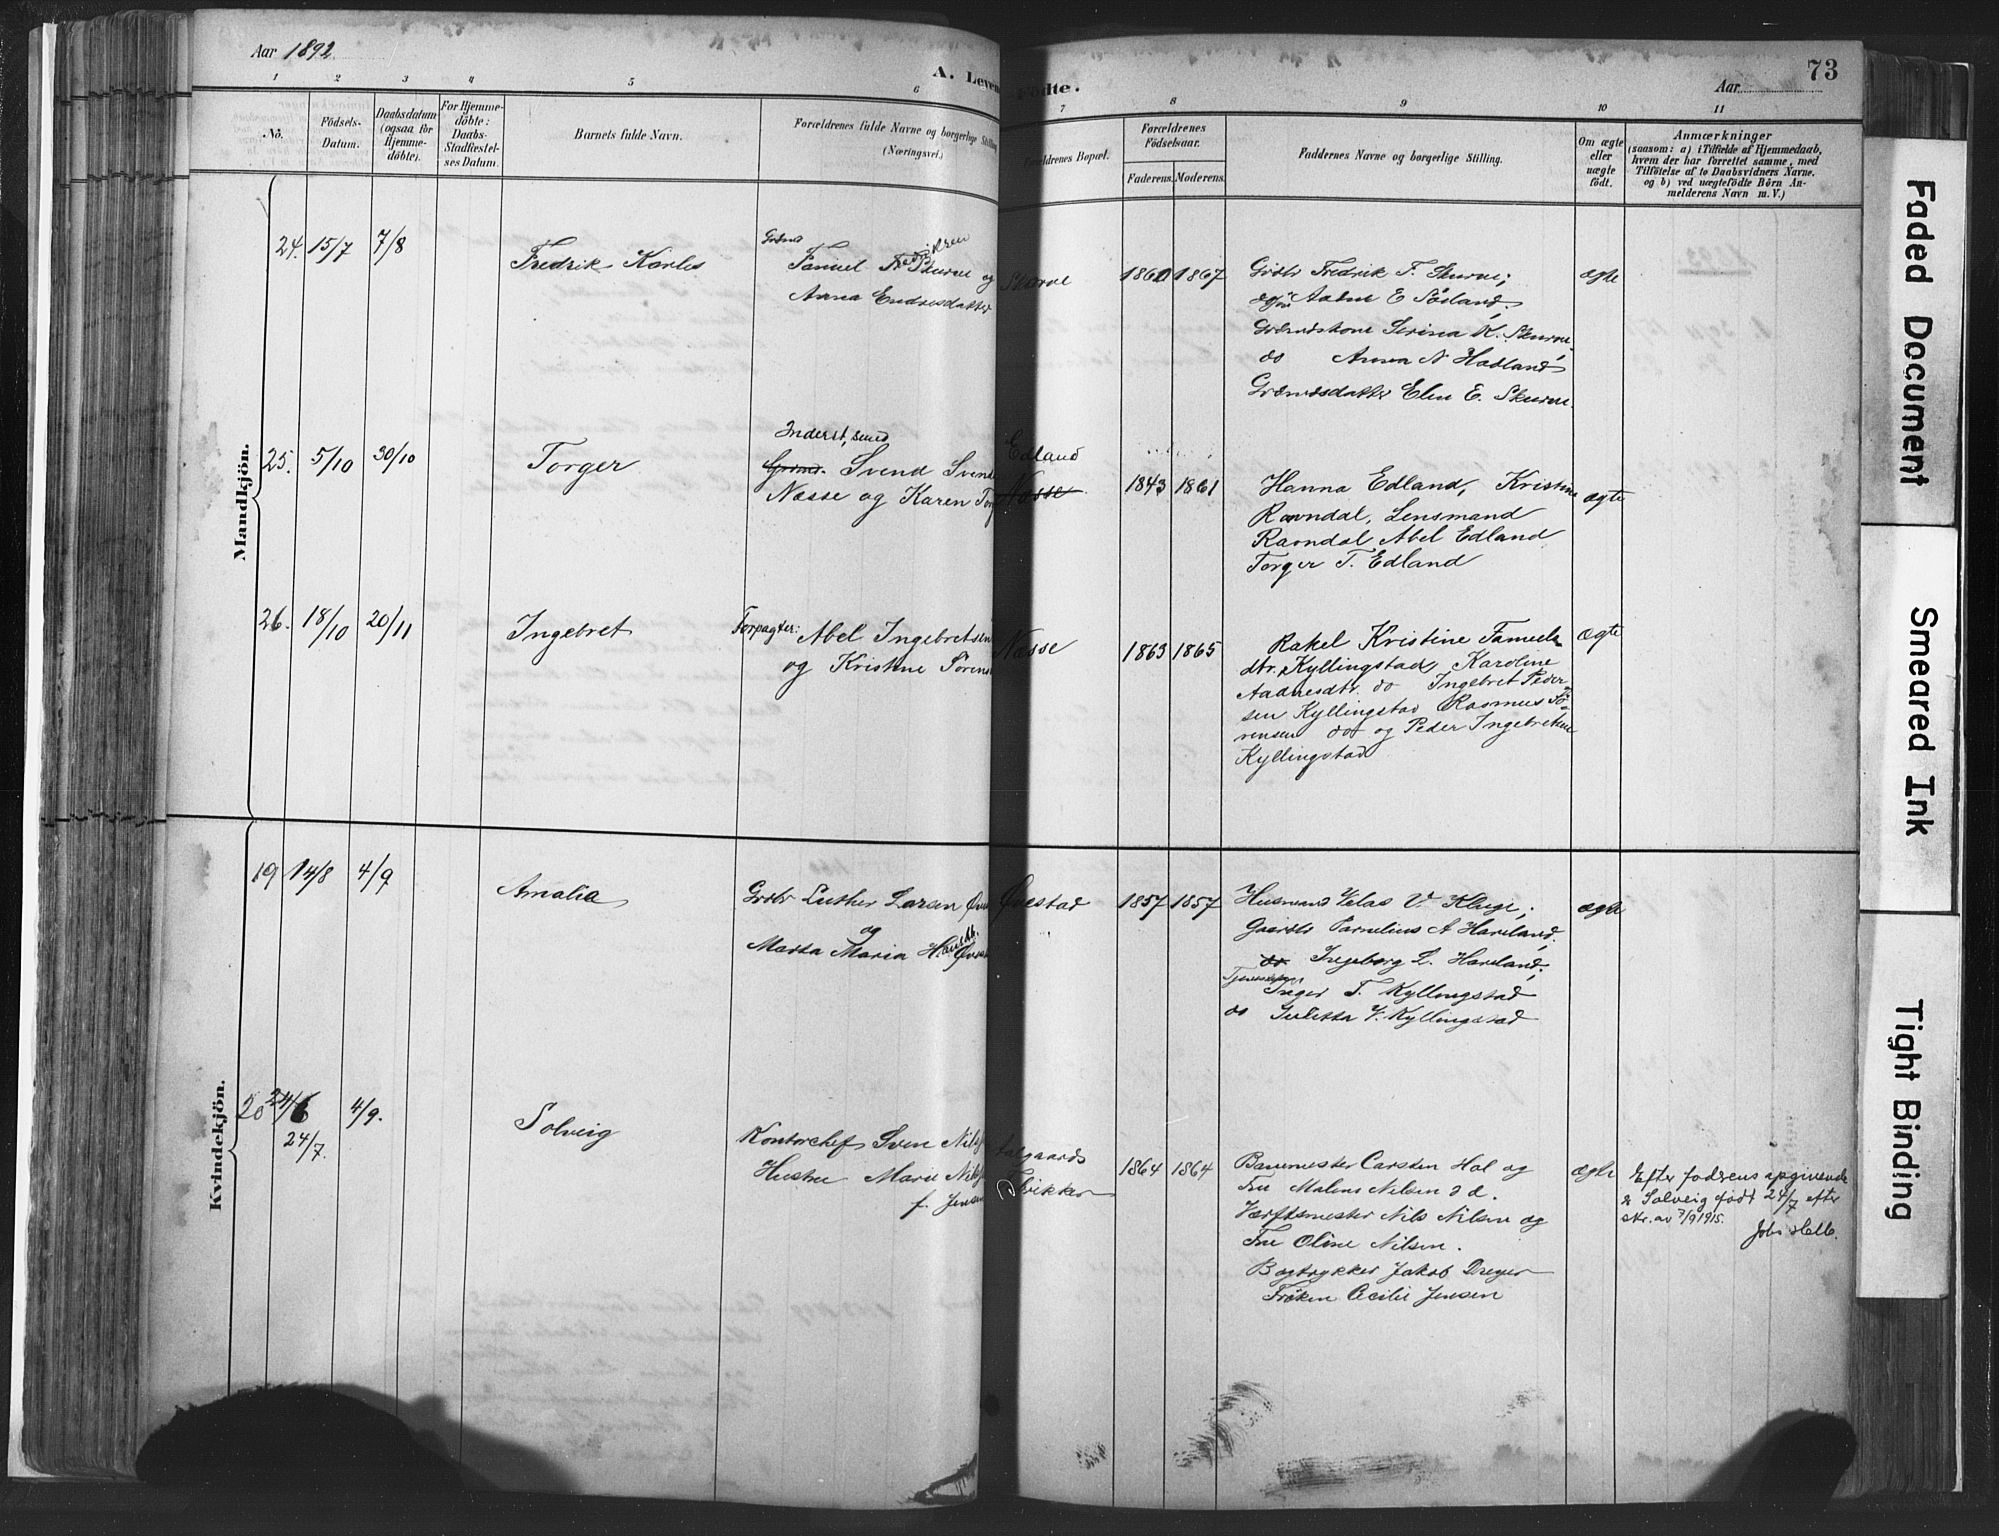 Aar 1892
A. Leven
Födte.
73
Aar
1 2 3 4 5 6 7 8 9 10 11
No.
Födsels-
Datum.
Daabsdatum
(ogsaa for
Hjemme-
döbte).
For Hjemme-
döbte:
Daabs-
Stadfæstel-
ses Datum.
Barnets fulde Navn.
Forældrenes fulde Navne og borgerlige Stilling
(Næringsvei.)
Forældrenes Bopæl.
Forældrenes
Födselsaar.
Faderens. Moderens.
Faddernes Navne og borgerlige Stilling.
Om ægte
eller
uægte
födt.
Anmærkninger
(saasom: a) i Tilfælde af Hjemmedaab,
hvem der har forrettet samme, med
Tilföielse af to Daabsvidners Navne,
og b) ved uægtefödte Börn An-
melderens Navn m. V.)
Mandkjön.
24. 15/7 7/8
Fredrik Karles
Grdmd
Tamuel Fredriksen
Skurve og
Anna Endresdatter
Skurve
1860 1867
Grdbr Fredrik T. Skurve;
Aadne E Søiland;
Grdmdskone Serina K. Skurve
do Anna N Hadland
Grdmdsdatter Elen E. Skurve.
ægte
25. 5/10 30/10
Torger
Inderst, smed
Grdmd. Svend Svend
Næsse og Karen Torg
Edland
Næsse
1843 1861
Hanna Edland, Kristine
Ravndal, Lensmand
Ravndal Abel Edland
Torger T. Edland
ægte
26. 18/10 20/11
Ingebret
Forpagter: Abel Ingebretsen
og Kristine Sørens
Næsse
1863 1865
Rakel Kristine Tamuels
dtr. Kyllingstad, Karoline
Aadnesdtr. do Ingebret Peder
sen Kyllingstad Rasmus Sö-
rensen do og Peder Ingebretsen
Kyllingstad
ægte
Kvindekjön.
19 14/8 4/9
Amalia
Grdbr Luther Larsen
og
Marta Maria
Øvestad
1857 1857
Husmand Velas V. Kluge;
Gaardbr Tarnelius A Haveland.
do Ingeborg L. Haveland;
Inger T. Kyllingstad
do Juletta V. Kyllingstad
ægte
20 24/6 4/9.
24/7.
Solveig
Kontorchef Sven Nils
Hustru Marie Nils
f. Jensen
Aalgaards
Fabrikker
1864 1864
Banemester Carsten Hal og
Fru Malene Nilsen s d.
Værftsmester Nils Nilsen og
Fru Oline Nilsen.
Bogtrykker Jakob Dreyer
Frøken Cecilie Jensen
ægte
Efter faderens opgivende
er Solveig født 24/7 efter
skr. av 7/9 1915.
Faded Document
Smeared Ink
Tight Binding